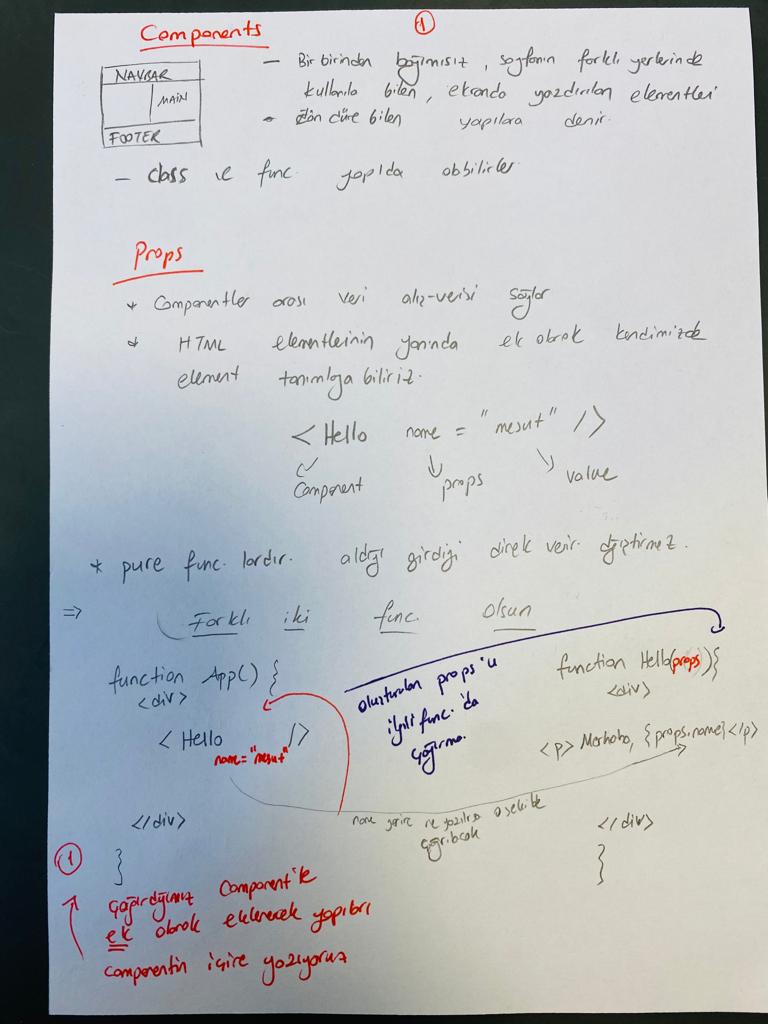 Components
1
NAVBAR
MAIN
FOOTER
— Bir birinden bağımısız, sayfanın farklı yerlerinde
kullanıla bilen, ekranda yazdırılan elementleri
dön düre bilen yapılara denir.
— class ve func. yapıda olabilirler
Props
* Componentler arası veri alış-verişi sağlar
* HTML elementleinin yanında ek olarak kendimizde
element tanımlaya biliriz.
< Hello name = "mesut" />
Component props value
* pure func. lardır. aldığı girdiği direk verir. değiştirmez.
⇒ Farklı iki func. olsun
function App() {
<div>
< Hello />
name="mesut"
</div>
}
oluşturulan props'u
ilgili func.'da
çağırma.
function Hello(props){
<div>
<p> Merhaba, {props.name}</p>
</div>
}
name yerine ne yazılırsa o şekilde
çağrılacak
1
çağırdığımız Component'le
ek olarak eklenecek yapıları
componentin içine yazıyoruz